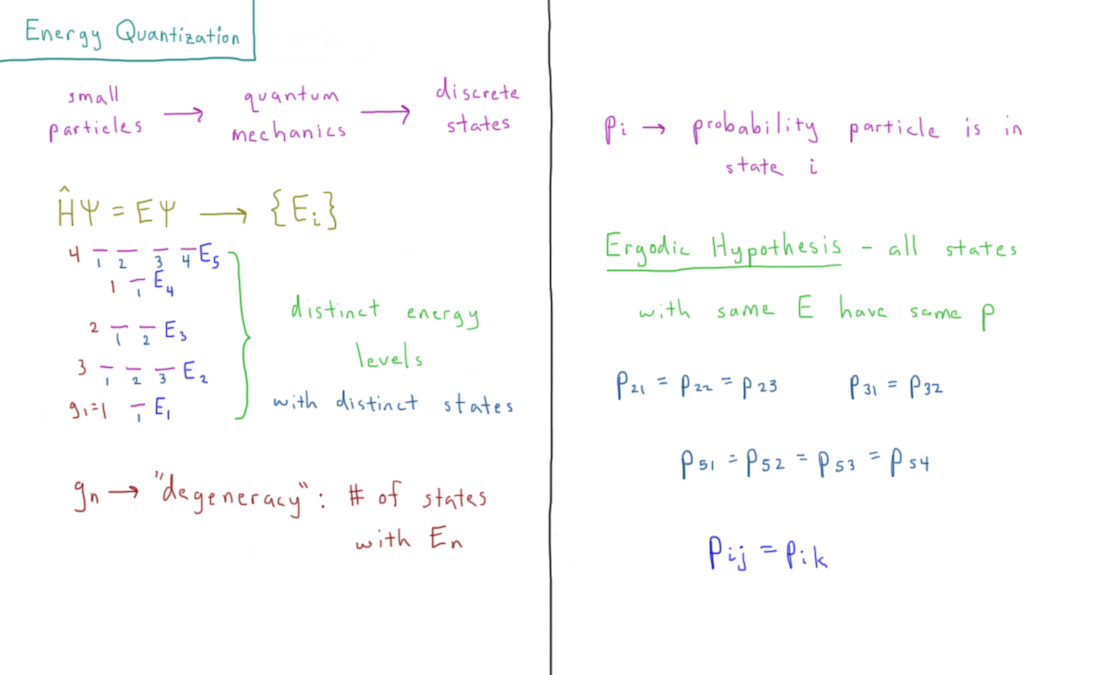 Energy Quantization
small particles → quantum mechanics → discrete states
ĤΨ = EΨ → {Eᵢ}
4 1 2 3 4 E₅
1 1 E₄
2 1 2 E₃
3 1 2 3 E₂
g₁=1 1 E₁
distinct energy
levels
with distinct states
gₙ → "degeneracy": # of states
with Eₙ
pᵢ → probability particle is in
state i
Ergodic Hypothesis - all states
with same E have same p
p₂₁ = p₂₂ = p₂₃ p₃₁ = p₃₂
p₅₁ = p₅₂ = p₅₃ = p₅₄
pᵢⱼ = pᵢₖ